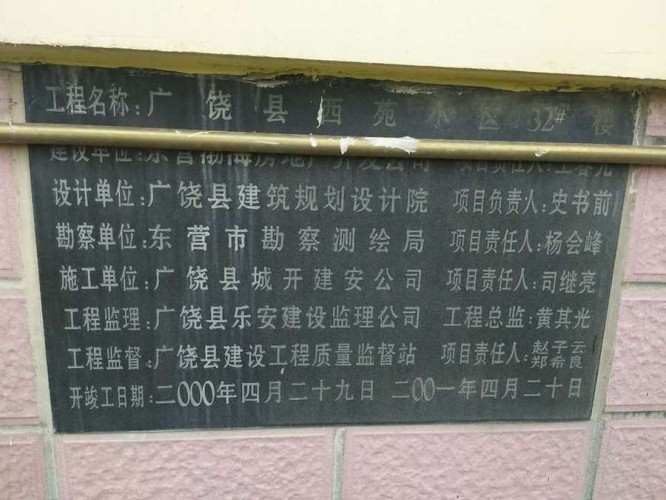 工程名称：广饶县西苑小区32#楼
建设单位：东营渤海房地产开发公司 项目责任人：王春光
设计单位：广饶县建筑规划设计院 项目负责人：史书前
勘察单位：东营市勘察测绘局 项目责任人：杨会峰
施工单位：广饶县城开建安公司 项目责任人：司继亮
工程监理：广饶县乐安建设监理公司 工程总监：黄其光
工程监督：广饶县建设工程质量监督站 项目责任人：赵子云 郑希良
开竣工日期：二000年四月二十九日 二00一年四月二十日